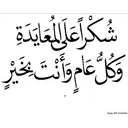 شُكْرًا عَلَى المُعَايَدَةِ
وَكُلُّ عَامٍ وَأَنْتَ بِخَيْرٍ